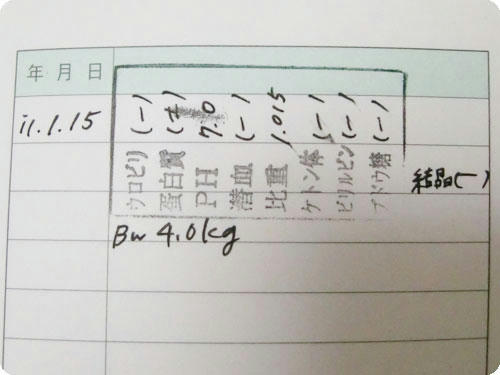 年月日
11.1.15
ウロビリ (-)
蛋白質 (±)
PH 7.0
潜血 (-)
比重 1.015
ケトン体 (-)
ビリルビン (-)
ブドウ糖 (-)
結晶(-)
BW 4.0kg